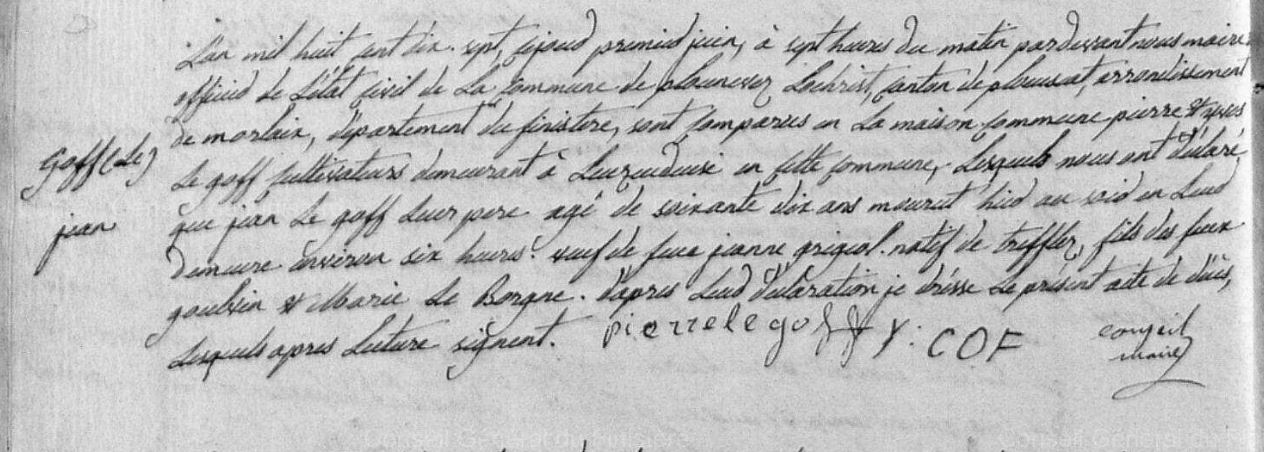 L'an mil huit cent dix-sept, cejoud premied juin, à sept heures du matin pardevant nous maire
officied de L'état civil de La commune de plounevez Lochrist, canton de plouescat, arrondissement
de morlaix, département du finistere, sont comparus en La maison commune pierre et yves
Goff (Le)
Le goff cultivateurs demeurant à en cette commune, Lesquels nous ont déclaré
que jean Le goff Leur pere agé de soixante dix ans mourut hied au soid en Leud
jean
demeure environ six heures. veuf de feue jeanne grigual. natif de treffler, fils des feux
goulven et Marie Le Borgne. d'apres Leud déclaration je drésse Le présent acte de décès,
Lesquels apres Lecture signent. pierre le goff y: COF conseil
maire
Conseil Général du Finistère
Conseil Général du Fin